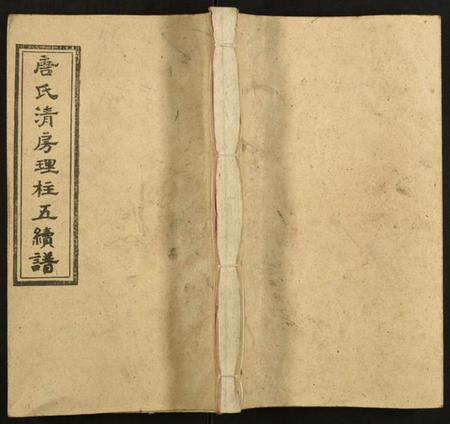 唐氏清房理柱五續譜